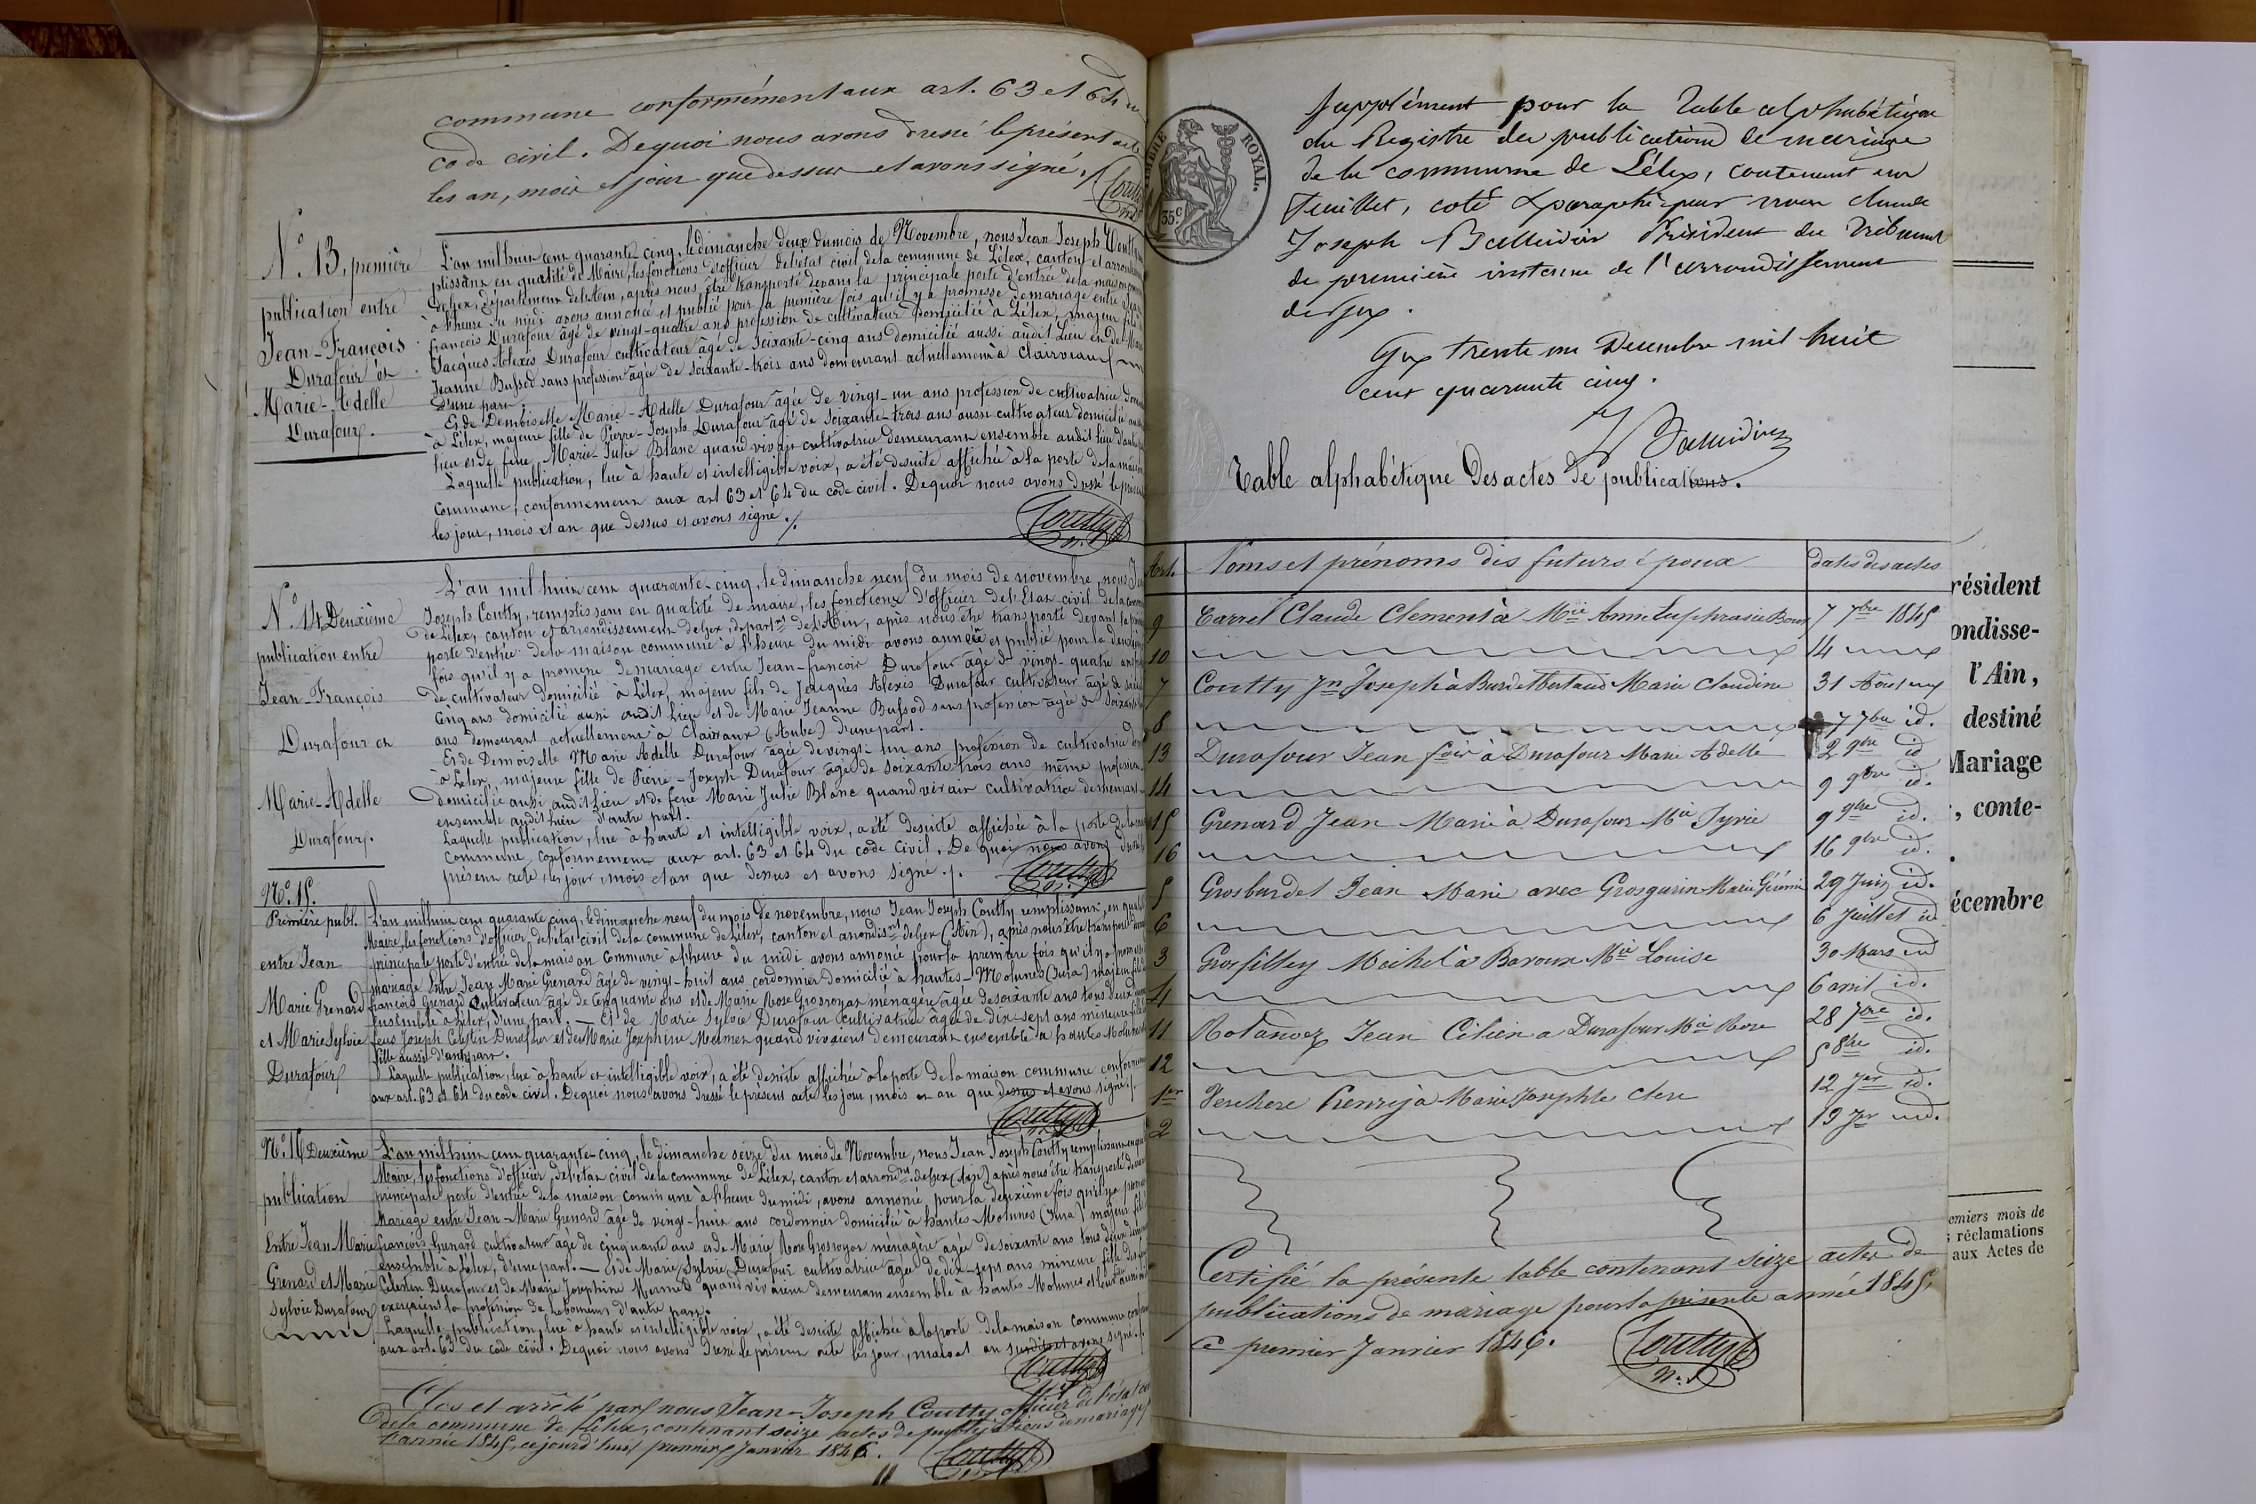 commune conformément aux art. 63 et 64 du
code civil. De quoi nous avons dressé le présent acte
les an, mois et jour que dessus et avons signé ./.
Coutty
N.º 13, première
publication entre
Jean-François
Durafour et
Marie-Adelle
Durafour.
L'an mil huit cent quarante cinq, le dimanche deux du mois de Novembre, nous Jean Joseph Coutty
plissant en qualité de Maire, les fonctions d'officier de l'état civil de la commune de Lélex, canton et arrondissement
de Gex, département de l'Ain, après nous être transporté devant la principale porte d'entrée de la maison
à l'heure du midi avons annoncé et publié pour la première fois qu'il y a promesse de mariage entre Jean
françois Durafour âgé de vingt-quatre ans profession de cultivateur domicilié à Lélex, majeur fils de
Jacques Alexis Durafour cultivateur âgé de soixante-cinq ans domicilié aussi audit Lieu et de Marie
Jeanne Bussod sans profession âgée de soixante-trois ans demeurant actuellement à Clairvaux
D'une part.
Et de Demoiselle Marie-Adelle Durafour âgée de vingt-un ans profession de cultivatrice
à Lélex, majeure fille de Pierre-Joseph Durafour âgé de soixante-trois ans aussi cultivateur domicilié au
lieu et de feue Marie-Julie Blanc quand vivait cultivatrice demeurant ensemble audit lieu d'autre
Laquelle publication, lue à haute et intelligible voix, a été desuite affichée à la porte de la maison
Commune, conformement aux art 63 et 64 du code civil. De quoi nous avons dressé le présent
les jour, mois et an que dessus et avons signé ./.
Coutty
N.º 14 Deuxième
publication entre
Jean-François
Durafour et
Marie-Adelle
Durafour.
L'an mil huit cent quarante-cinq, le dimanche neuf du mois de novembre, nous Jean
Joseph Coutty, remplissant en qualité de maire, les fonctions d'officier de l'Etat civil de la commune
de Lélex, canton et arrondissement de Gex, départ.nt de l'Ain, après nous être transporté devant la
porte d'entrée de la maison commune à l'heure du midi avons annoncé et publié pour la deuxième
fois qu'il y a promesse de mariage entre Jean-françois Durafour âgé de vingt-quatre ans
de cultivateur domicilié à Lélex, majeur fils de Jacques Alexis Durafour cultivateur âgé de soixante
Cinq ans domicilié aussi audit Lieu et de Marie Jeanne Bussod sans profession âgée de soixante
ans demeurant actuellement à Clairvaux (Aube) d'une part.
Et de Demoiselle Marie Adelle Durafour âgée de vingt-un ans profession de cultivatrice
à Lélex, majeure fille de Pierre-Joseph Durafour âgé de soixante trois ans même profession
domicilié aussi audit lieu et de feue Marie Julie Blanc quand vivait cultivatrice demeurant
ensemble audit lieu d'autre part.
Laquelle publication, lue à haute et intelligible voix, a été desuite affichée à la porte de la
commune conformement aux art. 63 et 64 du code civil. De quoi nous avons dressé
présent acte, les jour, mois et an que dessus et avons signé ./.
Coutty
N.º 15.
Première publ.
entre Jean
Marie Grenard
et Marie Sylvie
Durafour
L'an mil huit cent quarante cinq, le dimanche neuf du mois de novembre, nous Jean Joseph Coutty remplissant, en qualité
Maire, les fonctions d'officier de l'état civil de la commune de Lélex, canton et arrondis.nt de Gex (Ain), après nous être transporté devant
principale porte d'entrée de la maison commune à l'heure du midi avons annoncé pour la première fois qu'il y a promesse
mariage entre Jean Marie Grenard âgé de vingt-huit ans cordonnier domicilié à hautes-Molunes (Jura) majeur fils
françois Grenard cultivateur âgé de cinquante ans et de Marie Rose Grosroyat ménagère âgée de soixante ans tous deux
ensemble à Lélex, d'une part. — Et de Marie Sylvie Durafour cultivatrice âgée de dix-sept ans mineure fille
feus Joseph Célestin Durafour et de Marie Joséphine Mermet quand vivaient demeurant ensemble à hautes Molunes
fille aussi d'autre part.
Laquelle publication, lue à haute et intelligible voix, a été desuite affichée à la porte de la maison commune conformement
aux art. 63 et 64 du code civil. De quoi nous avons dressé le présent acte les jour, mois et an que dessus et avons signé ./.
Coutty
N.º 16 Deuxième
publication
Entre Jean Marie
Grenard et Marie
Sylvie Durafour
L'an mil huit cent quarante-cinq, le dimanche seize du mois de Novembre, nous Jean Joseph Coutty remplissant en qualité
Maire, les fonctions d'officier de l'état civil de la commune de Lélex, canton et arrond.nt de Gex (Ain) après nous être transporté devant
principale porte d'entrée de la maison commune à l'heure du midi, avons annoncé pour la deuxième fois qu'il y a promesse
Mariage entre Jean-Marie Grenard âgé de vingt-huit ans cordonnier domicilié à hautes-Molunes (Jura) majeur fils
françois Grenard cultivateur âgé de cinquante ans et de Marie Rose Grosroyat ménagère âgée de soixante ans tous deux
ensemble à Lélex, d'une part. — et de Marie Sylvie Durafour cultivatrice âgée de dix-sept ans mineure fille
Célestin Durafour et de Marie Joséphine Mermet quand vivaient demeurant ensemble à hautes Molunes
exerçaient la profession de laboureur d'autre part.
Laquelle publication, lue à haute et intelligible voix, a été desuite affichée à la porte de la maison commune
aux art. 63 du code civil. De quoi nous avons dressé le présent acte les jour, mois et an susdits et avons signé ./.
Coutty
Clos et arrêté par nous Jean-Joseph Coutty officier de l'état
de la commune de Lélex, contenant seize actes de publications de mariage
l'année 1845, ce jourd'hui premier Janvier 1846.
Coutty
ROYAL.
35 c
Supplément pour la Table alphabétique
du Registre des publications de mariage
de la commune de Lélex, contenant un
feuillet, coté & paraphé par nous claude
Joseph Balleidier Président du Tribunal
de première instance de l'arrondissement
de Gex.
Gex trente un Decembre mil huit
cent quarante cinq.
Balleidier
Table alphabétique Des actes de publications.
Art. Noms et prénoms des futurs époux dates des actes
9 Carrel Claude Clement à Mie Anne Euphrasie 7 7bre 1845
10 14
7 Coutty Jn Joseph à Burdet Bertaud Marie Claudine 31 Août
8 7 7bre id.
13 Durafour Jean fois à Durafour Marie Adelle 2 9bre id
14 9 9bre id.
15 Grenard Jean Marie à Durafour Mie Sylvie 9 9bre id.
16 16 9bre id.
5 Grosburdet Jean Marie avec Grosgurin Marie 29 Juin id.
6 6 Juillet id
3 Grosfilley Michel à Baroux Mie Louise 30 Mars id
4 6 avril id.
11 Jean à Durafour Mie Rose 28 7bre id.
12 5 8bre id.
1er Verchere Henri à Marie Josephte Clerc 12 Jer id.
2 19 Jer id.
Certifié la présente table contenant seize actes de
publications de mariage pour la présente année 1845,
Ce premier Janvier 1846.
Coutty
résident
ondisse-
l'Ain,
destiné
Mariage
, conte-
écembre
emiers mois de
réclamations
aux Actes de